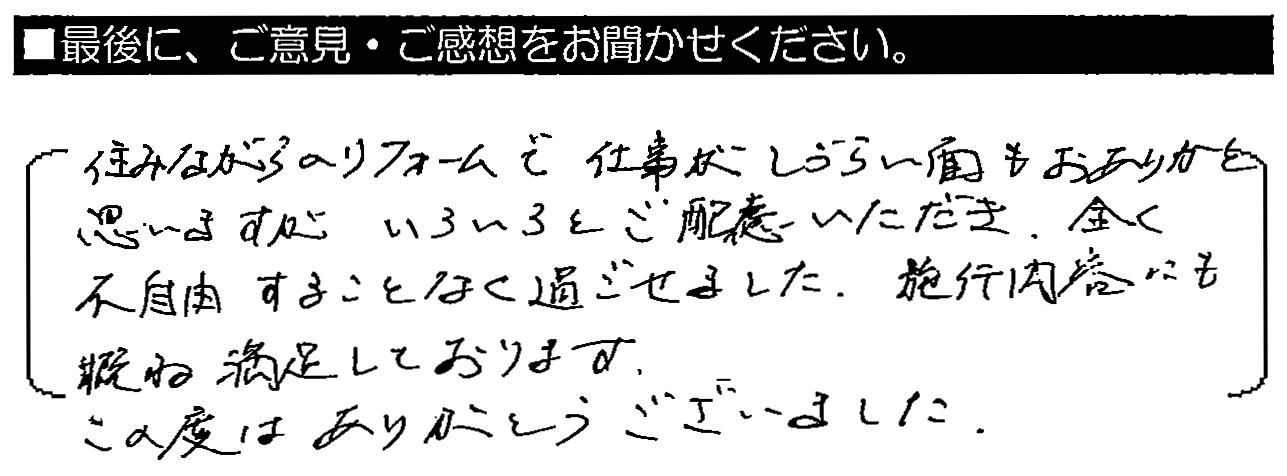 ■最後に、ご意見・ご感想をお聞かせください。
住みながらのリフォームで 仕事がしづらい面もおありかと
思いますが いろいろとご配慮いただき、全く
不自由することなく過ごせました。施行内容にも
概ね満足しております。
この度はありがとうございました。